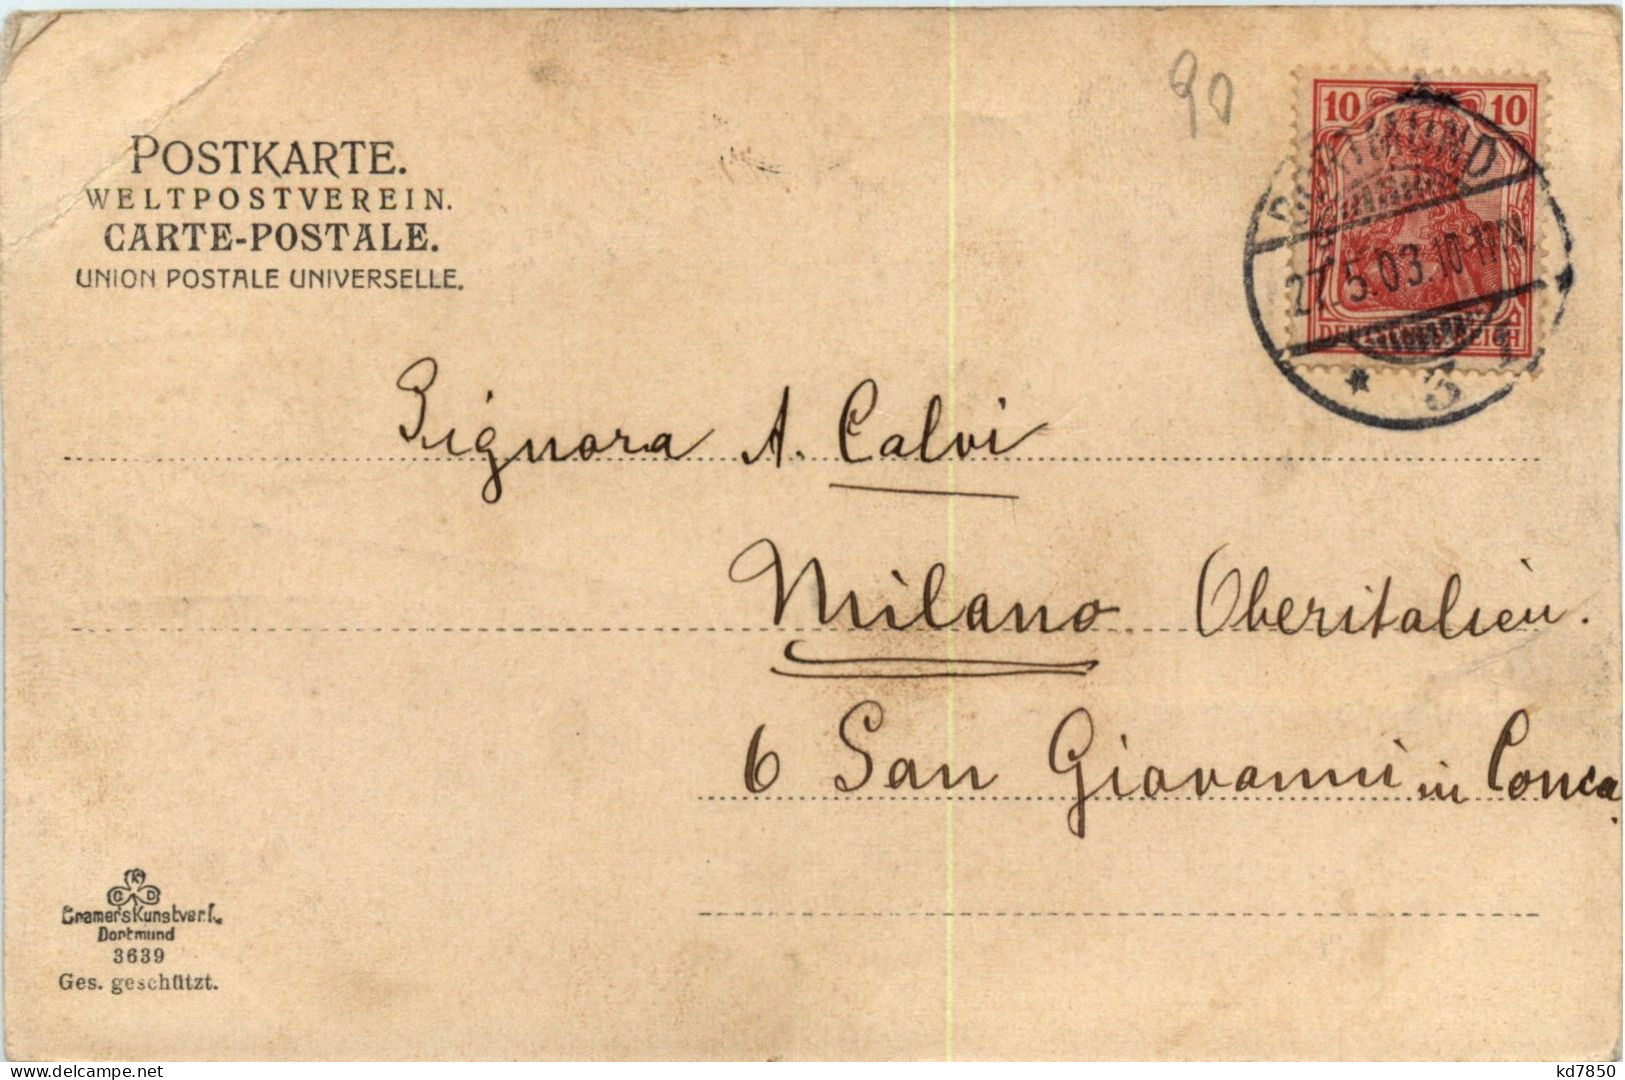 90
10 10
DORTMUND
27.5.03.10-11N.
DEUTSCHES REICH
* 5 1
POSTKARTE.
WELTPOSTVEREIN.
CARTE-POSTALE.
UNION POSTALE UNIVERSELLE.
Signora A. Calvi
Milano Oberitalien.
6 San Giovanni in Conca
C K D
Cramers Kunstverl.
Dortmund
3639
Ges. geschützt.
kd7850